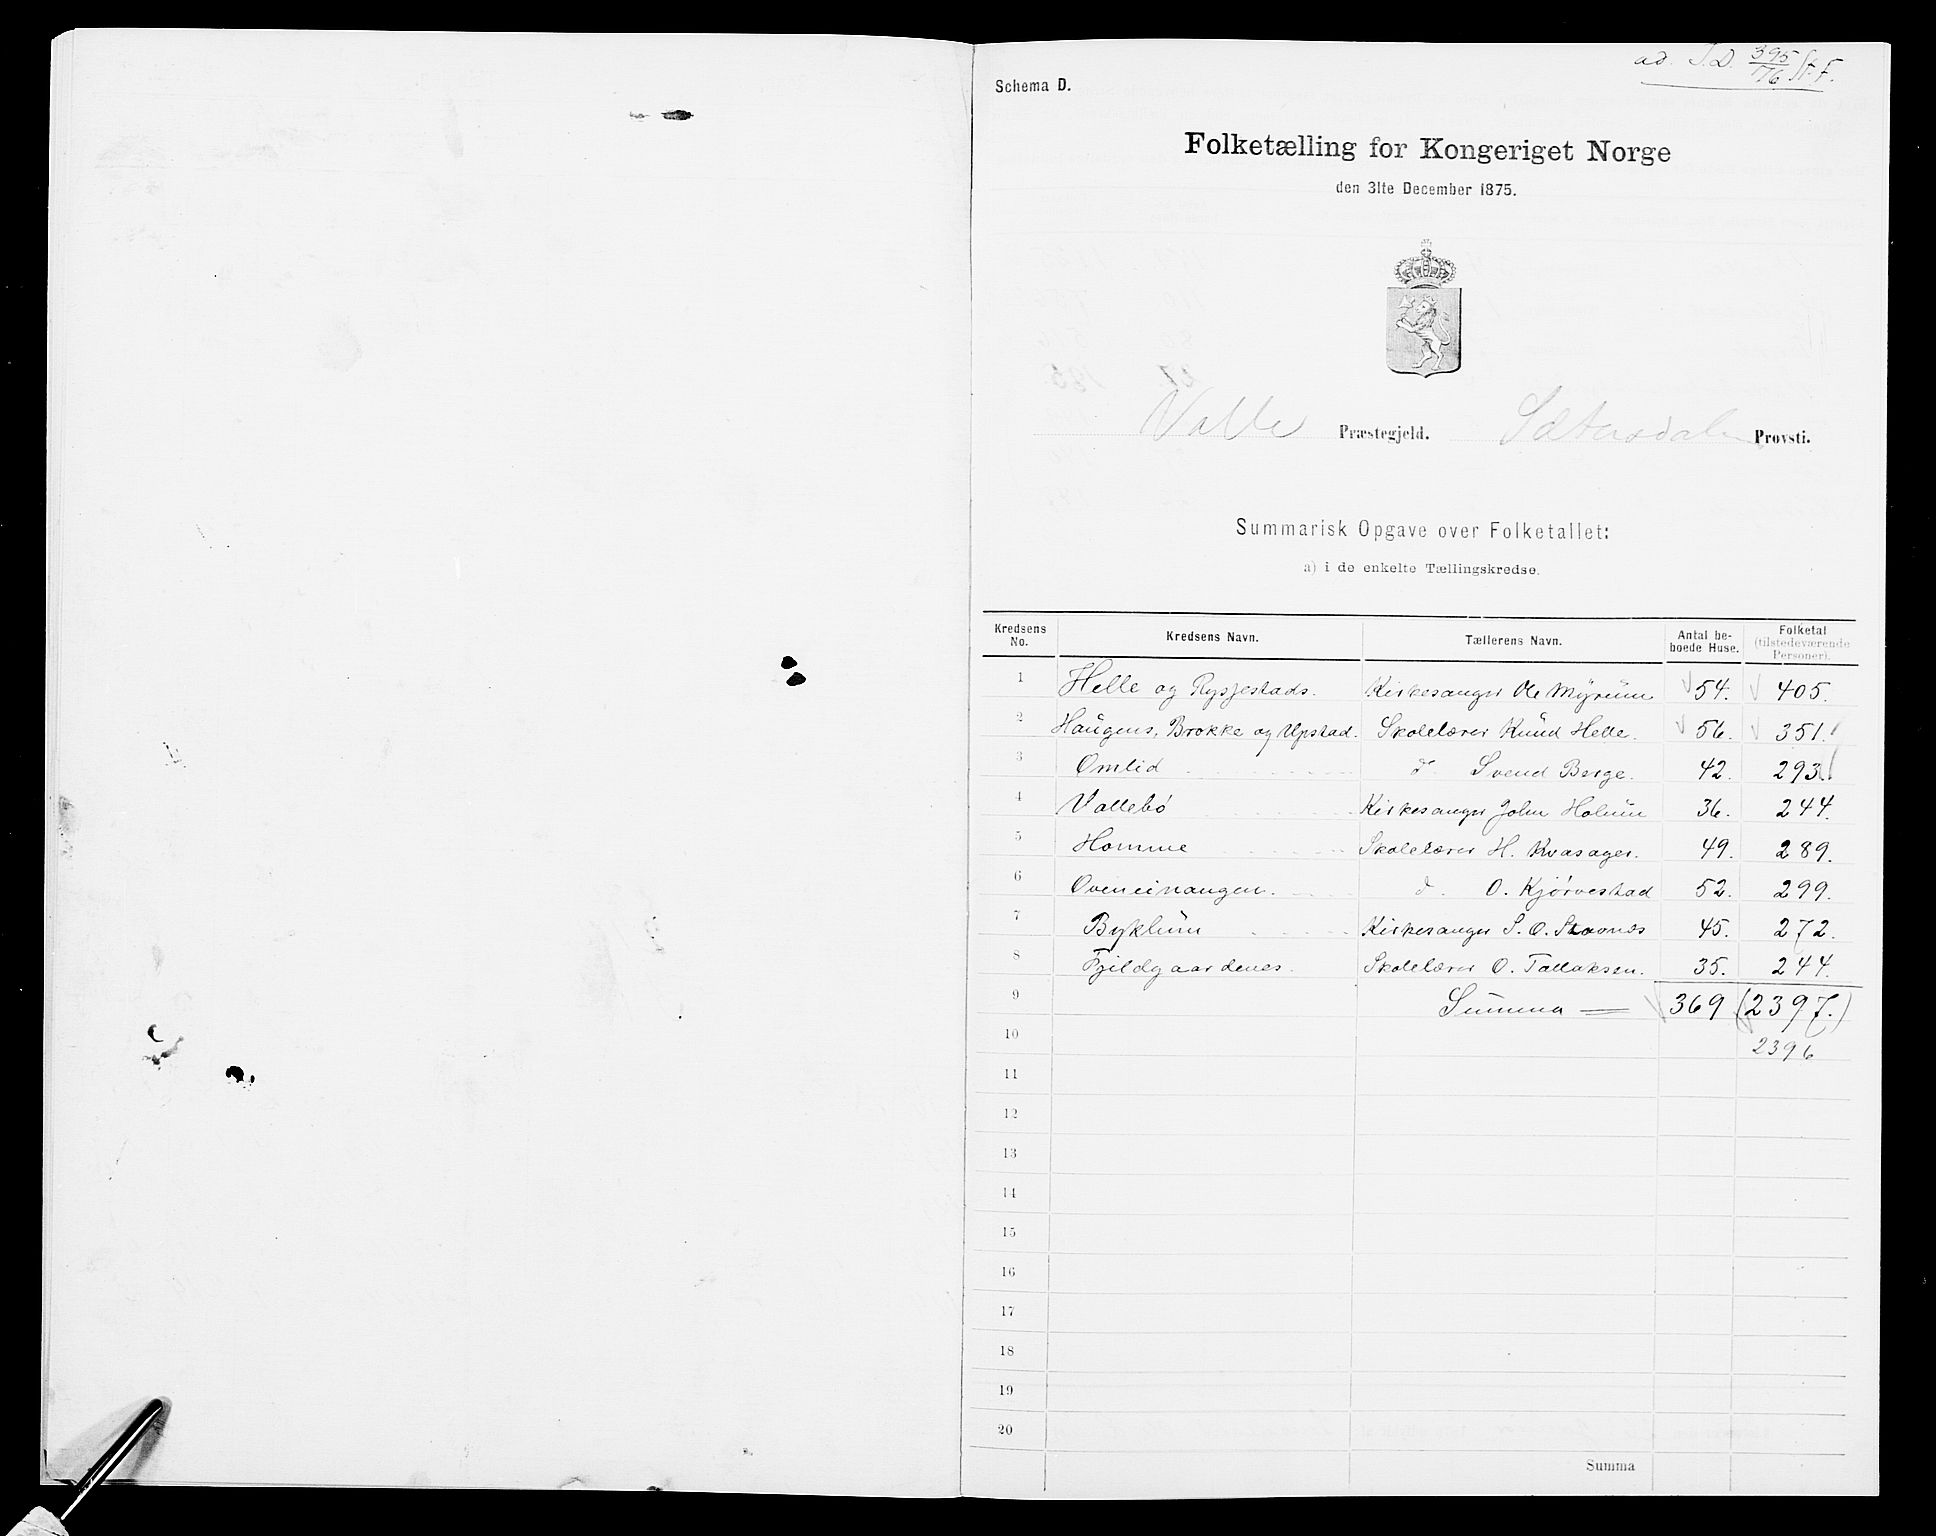 ad. J.D. 395/76 St. F.
Schema D.
Folketælling for Kongeriget Norge
den 31te December 1875.
Valle Præstegjeld. Sætersdalen Provsti.
Summarisk Opgave over Folketallet:
a) i de enkelte Tællingskredse.
Kredsens No. Kredsens Navn. Tællerens Navn. Antal beboede Huse. Folketal (tilstedeværende Personer).
1 Helle og Rysjestads. Kirkesanger Ole Myrum 54. 405.
2 Haugens, Brokke og Upstad. Skolelærer Knud Helle. 56. 351.
3 Omlid d. Svend Berge. 42. 293
4 Vallebø Kirkesanger John Holum 36. 244.
5 Homme Skolelærer H. Kvasager. 49. 289.
6 Oveneinangen. d. O. Kjørvestad 52. 299.
7 Byklum Kirkesanger S. O. Stavnes 45. 272.
8 Fjeldgaardenes. Skolelærer O. Tallaksen. 35. 244.
9 Summa 369 (2397.)
10 2396
11
12
13
14
15
16
17
18
19
20
Summa